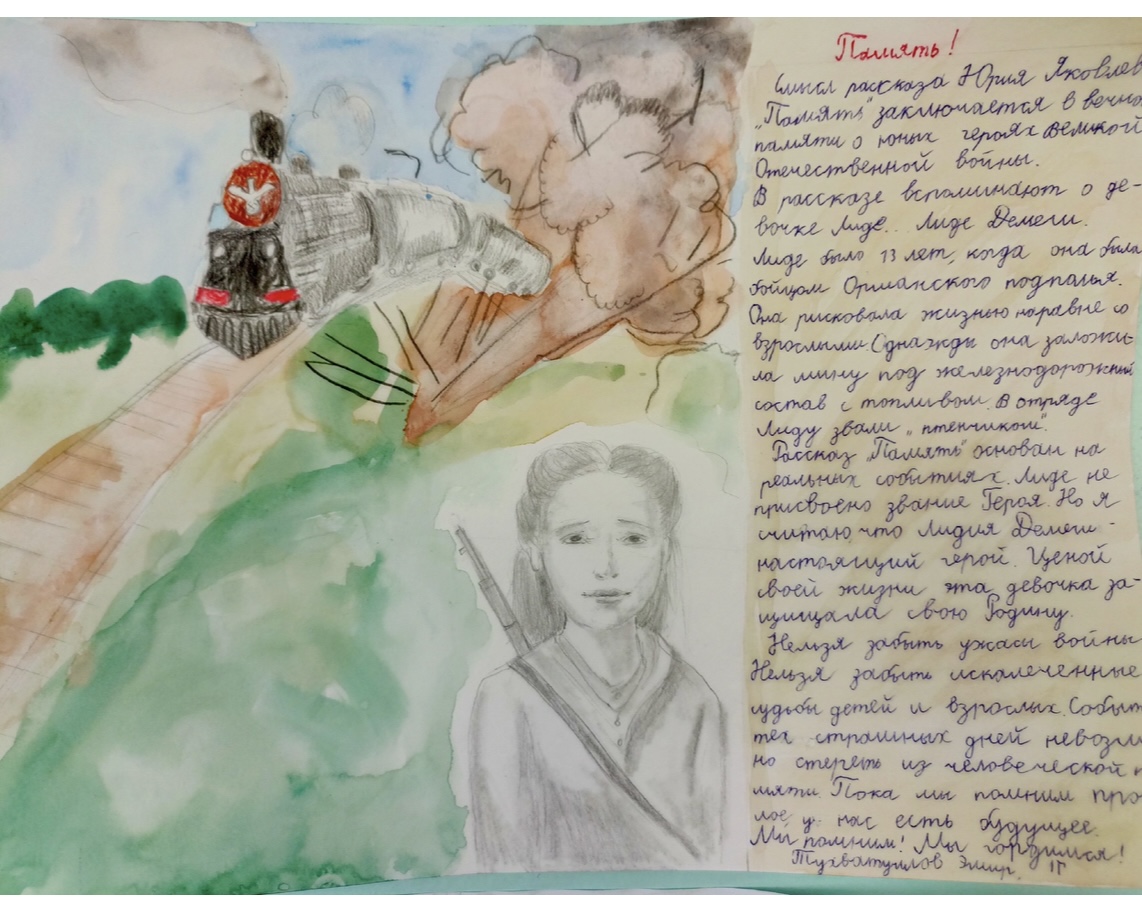 Память!
Смысл рассказа Юрия Яковлев
„Память" заключается в вечно
памяти о юных героях Великой
Отечественной войны.
В рассказе вспоминают о де-
вочке Лиде... Лиде Демеш.
Лиде было 13 лет, когда она была
бойцом Оршанского подполья.
Она рисковала жизнью наравне со
взрослыми. Однажды она заложи-
ла мину под железнодорожный
состав с топливом. В отряде
Лиду звали „птенчиком".
Рассказ „Память" основан на
реальных событиях. Лиде не
присвоено звание Героя. Но я
считаю, что Лидия Демеш -
настоящий герой. Ценой
своей жизни эта девочка за-
щищала свою Родину.
Нельзя забыть ужасы войны
Нельзя забыть искалеченные
судьбы детей и взрослых. Событ
тех страшных дней невозм
но стереть из человеческой п
мяти. Пока мы помним про
лое у нас есть будущее.
Мы помним! Мы гордимся!
Тухватуллов Эмир. 1Г